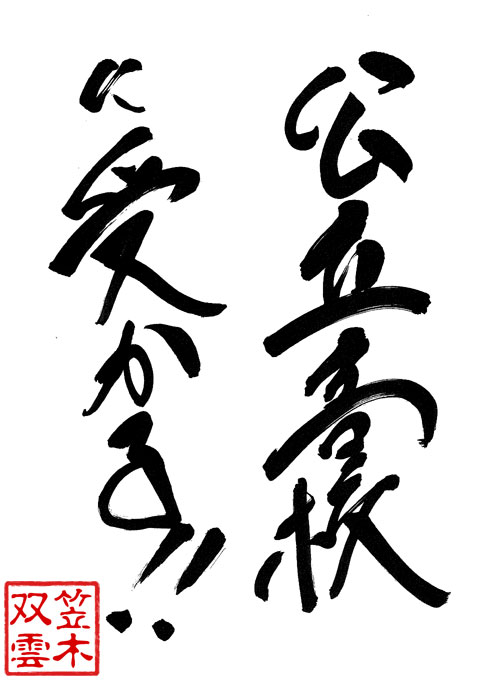 公立高校
に受かる!!
笠木
双雲